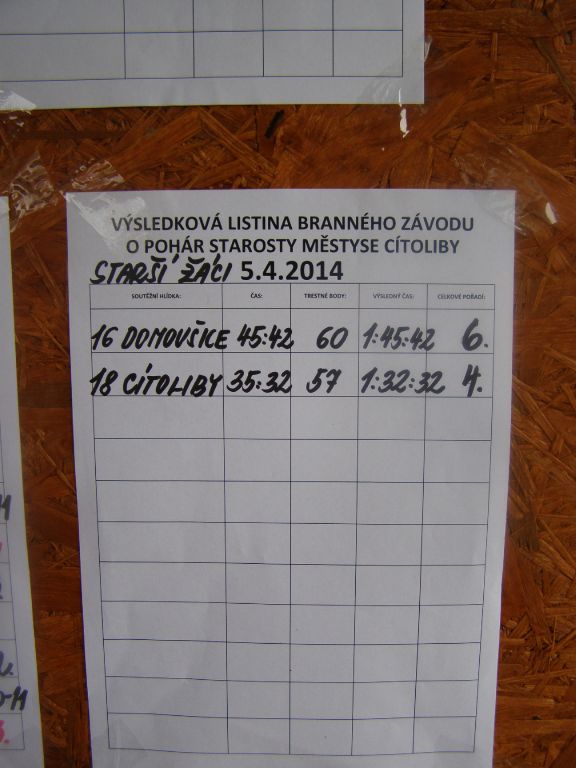 VÝSLEDKOVÁ LISTINA BRANNÉHO ZÁVODU
O POHÁR STAROSTY MĚSTYSE CÍTOLIBY
STARŠÍ ŽÁCI 5.4.2014
SOUTĚŽNÍ HLÍDKA: ČAS: TRESTNÉ BODY: VÝSLEDNÝ ČAS: CELKOVÉ POŘADÍ:
16 DOMOUŠICE 45:42 60 1:45:42 6.
18 CÍTOLIBY 35:32 57 1:32:32 4.